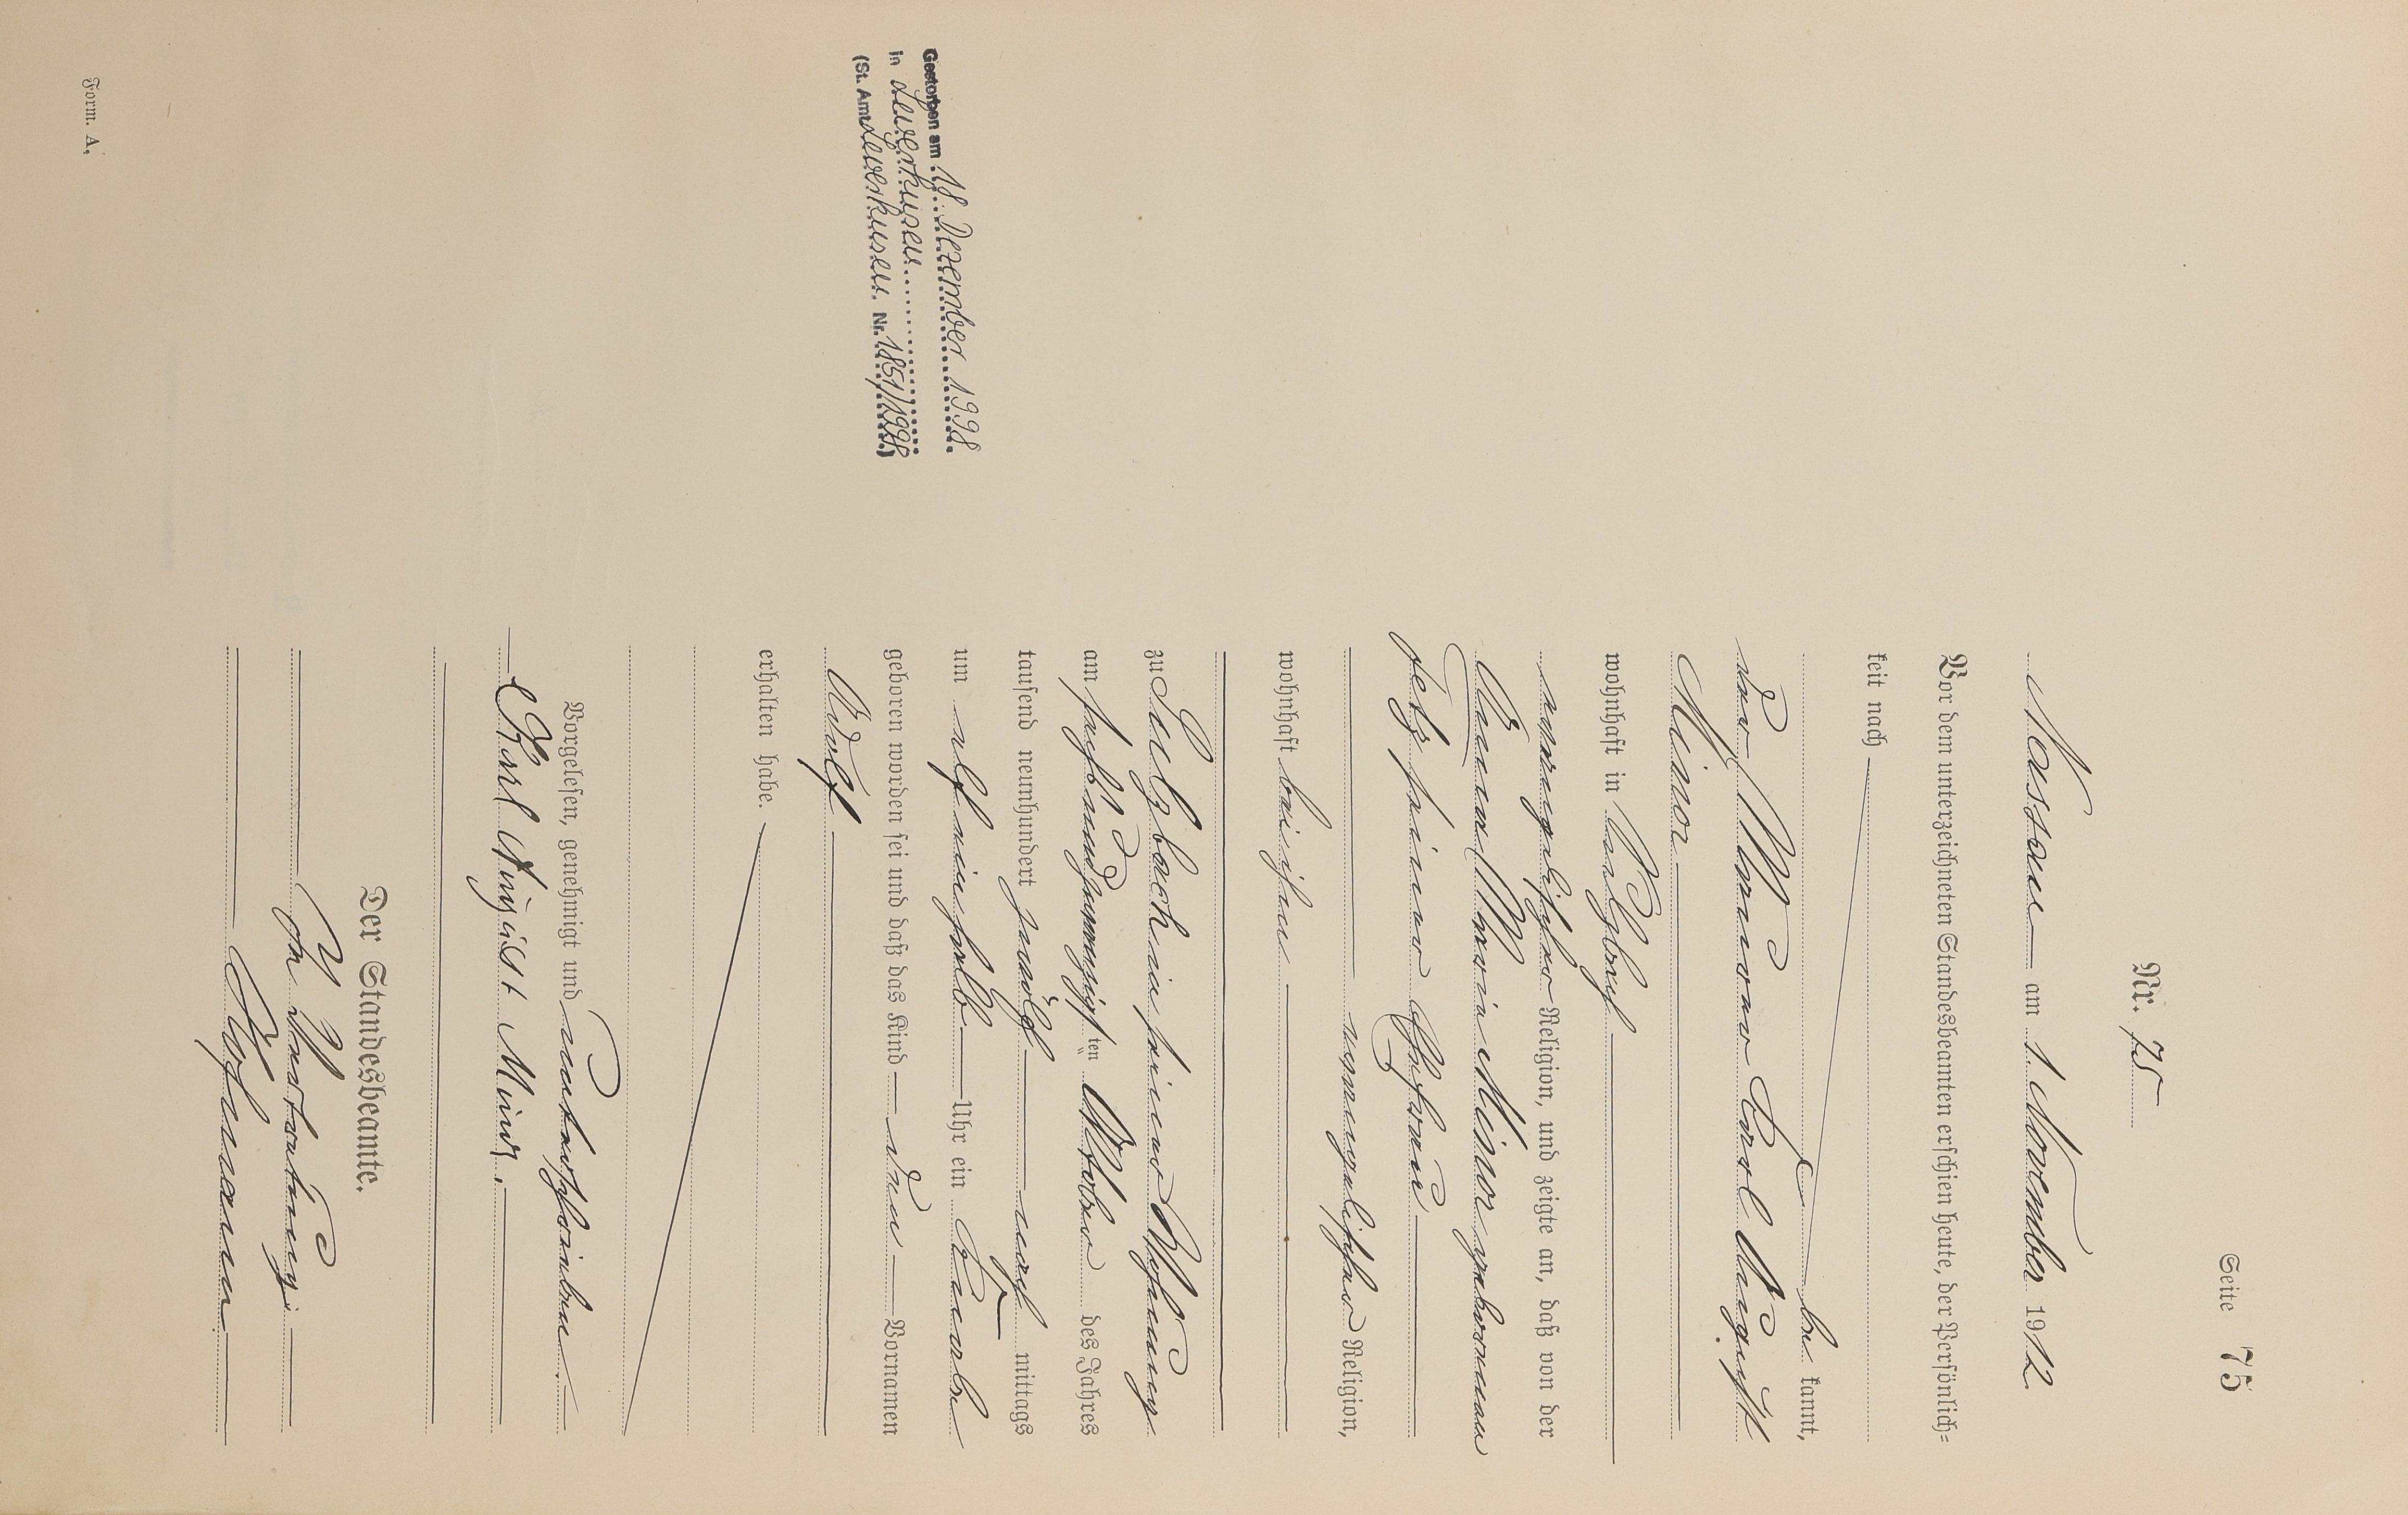 Seite 75
Nr. 75
Nassau am 1. November 1912
Vor dem unterzeichneten Standesbeamten erschien heute, der Persönlich-
keit nach
be kannt,
der Maurer Karl August
Minor
wohnhaft in
evangelischer Religion, und zeigte an, daß von der
Maria Minor geborenen
seiner Ehefrau
evangelischer Religion,
wohnhaft bei ihm
zu Sulzbach in seiner Wohnung
am sechsundzwanzigsten Oktober des Jahres
tausend neunhundert zwölf nach mittags
um elf einhalb Uhr ein Knabe
geboren worden sei und daß das Kind den Vornamen
Adolf
erhalten habe.
Vorgelesen, genehmigt und unterschrieben
Karl August Minor.
Der Standesbeamte.
In Vertretung:
Gestorben am 18. Dezember 1998
in Leverkusen
(St. Amt Leverkusen Nr. 1851/1998)
Form. A.